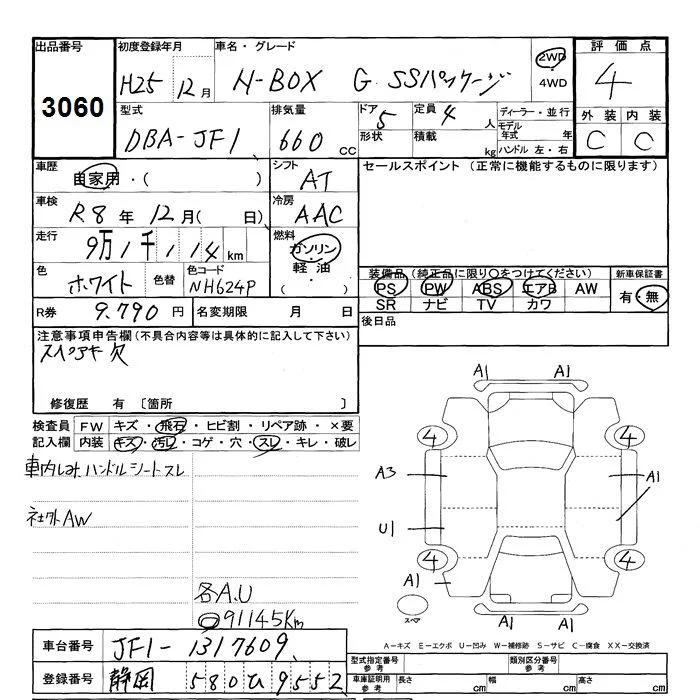 出品番号 初度登録年月 車名・グレード 評価点
3060 H25 12月 N-BOX G SSパッケージ 2WD 4WD 4
型式 排気量 ドア 定員 ディーラー・並行 外装 内装
DBA-JF1 660 CC 5 4人 モデル年式 年 C C
形状 積載 kg ハンドル 左・右
車歴 自家用・( ) シフト AT セールスポイント (正常に機能するものに限ります)
車検 R8年12月( 日) 冷房 AAC
走行 9万1千114km 燃料 ガソリン・軽油・
色 ホワイト 色替 色コード NH624P
装備品(純正品に限り○をつけてください) 新車保証書
PS PW ABS エアB AW 有・無
SR ナビ TV カワ
R券 9.790円 名変期限 月 日 後日品
注意事項申告欄(不具合内容等は具体的に記入して下さい)
スペアキ欠
修復歴 有 〔箇所 〕
検査員 FW キズ・飛石・ヒビ割・リペア跡・×要
記入欄 内装 キズ・汚レ・コゲ・穴・スレ・キレ・破レ
車内しみ ハンドルシートスレ
社外AW
各A.U
91145Km
A1 A1
4 4
A3 A1
U1
4 4
A1
スペア A1 A1
A-キズ E-エクボ U-凹み W-補修跡 S-サビ C-腐食 XX-交換済
車台番号 JF1-1317609 型式指定番号 参考 類別区分番号 参考
登録番号 静岡 580 ひ 9552 車庫証明用 参考 長さ cm 幅 cm 高さ cm